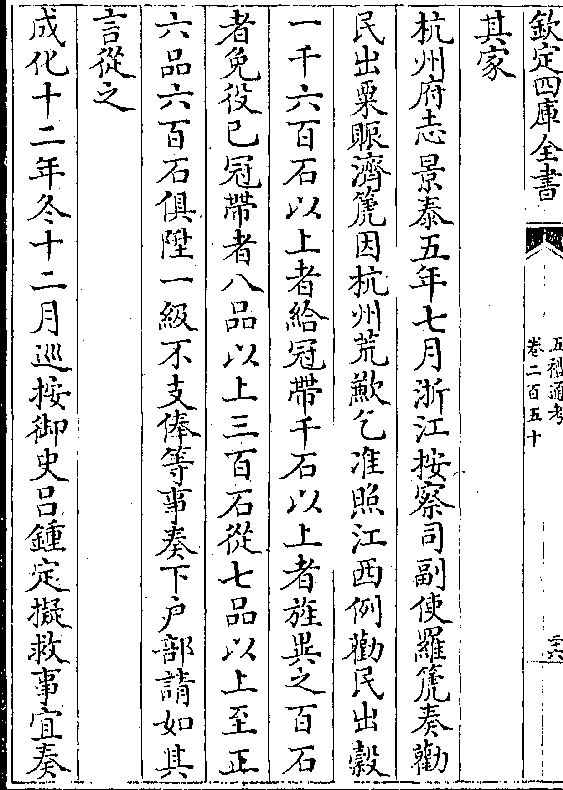 欽定四庫全書
五禮通考
卷二百五十
三六
其家
杭州府志景泰五年七月浙江按察司副使羅箎奏勸
民出粟賑濟箎因杭州荒歉乞准照江西例勸民出穀
一千六百石以上者給冠帶千石以上者旌異之百石
者免役已冠帶者八品以上三百石從七品以上至正
六品六百石俱陞一級不支俸等事奏下户部請如其
言從之
成化十二年冬十二月巡按御史吕鍾定擬救事宜奏